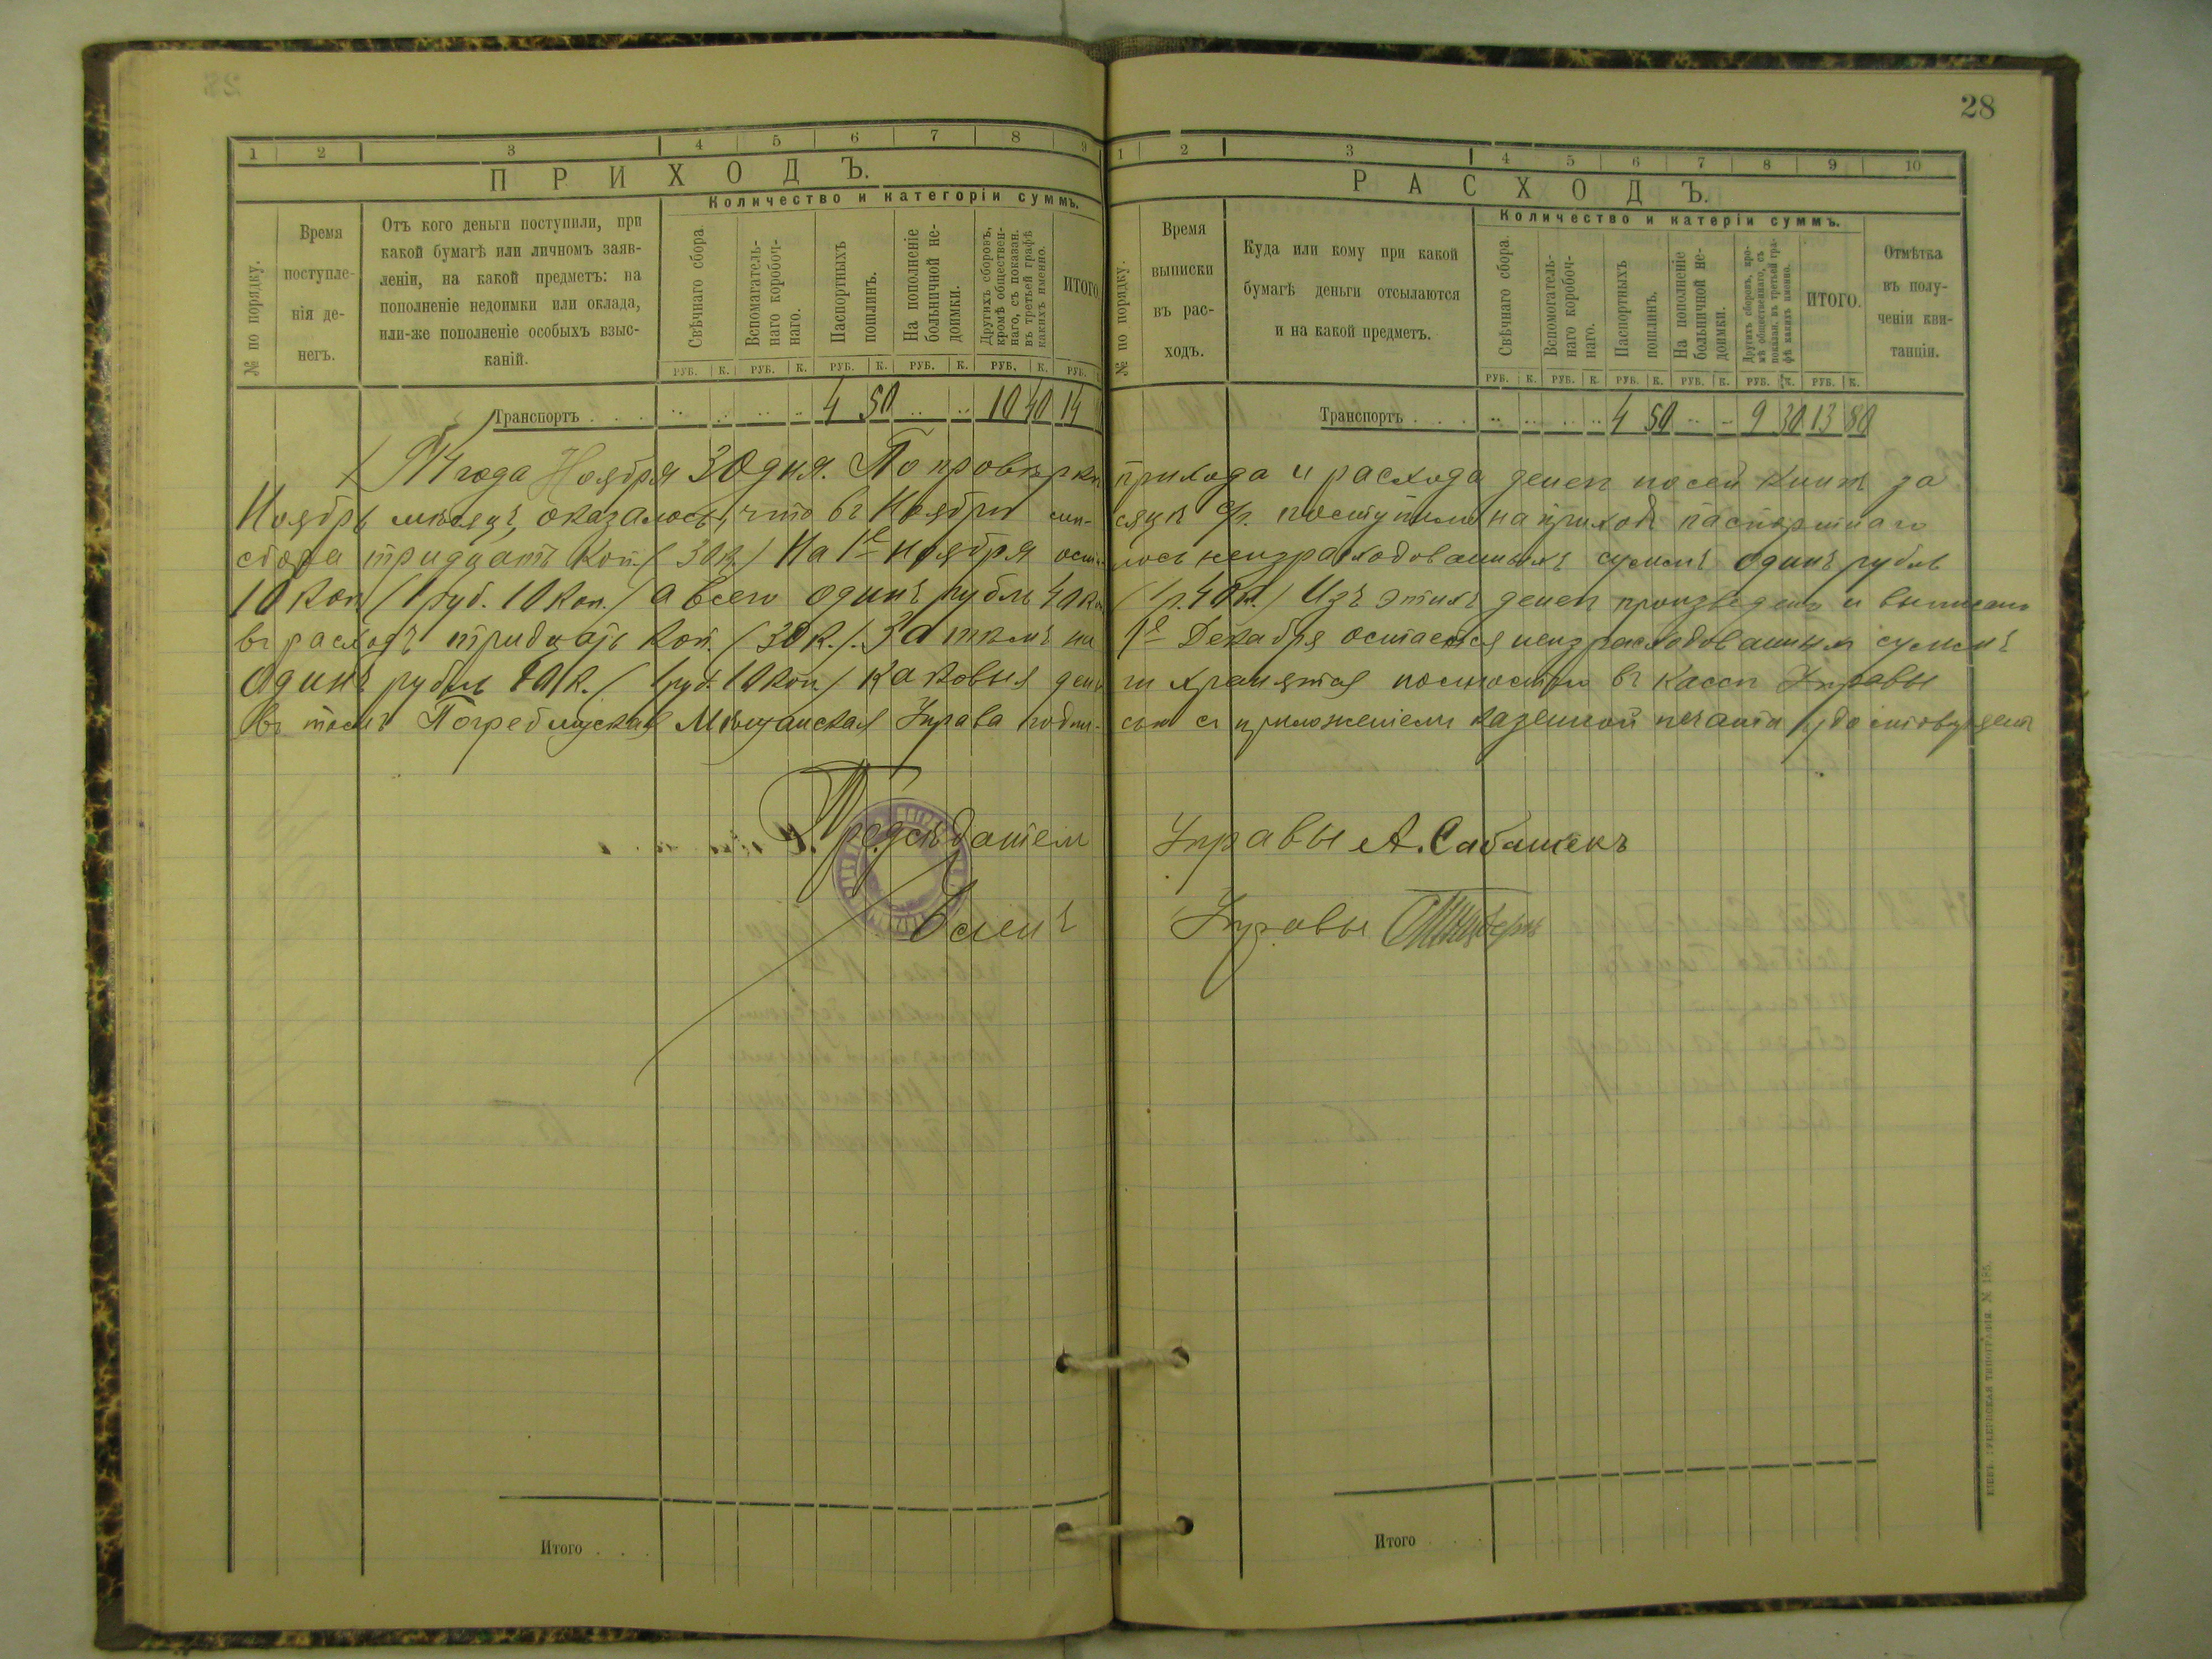 28
1 2 3 4 5 6 7 8 9
ПРИХОДЪ.
Количество и категоріи суммъ.
№ по порядку.
Время
поступле-
нія де-
негъ.
Отъ кого деньги поступили, при
какой бумагѣ или личномъ заяв-
леніи, на какой предметъ: на
пополненіе недоимки или оклада,
или-же пополненіе особыхъ взыс-
каній.
Свѣчнаго сбора.
Вспомагатель-
наго коробоч-
наго.
Паспортныхъ
пошлинъ.
На пополненіе
больничной не-
доимки.
Другихъ сборовъ,
кромѣ обществен-
наго, съ показан.
въ третьей графѣ
какихъ именно.
ИТОГО
РУБ. К. РУБ. К. РУБ. К. РУБ. К. РУБ. К. РУБ.
Транспортъ . . . 4 50 10 40 14
1 2 3 4 5 6 7 8 9 10
РАСХОДЪ.
Количество и катеріи суммъ.
№ по порядку.
Время
выписки
въ рас-
ходъ.
Куда или кому при какой
бумагѣ деньги отсылаются
и на какой предметъ.
Свѣчнаго сбора.
Вспомогатель-
наго коробоч-
наго.
Паспортныхъ
пошлинъ.
На пополненіе
больничной не-
доимки.
Другихъ сборовъ, кро-
мѣ общественнаго, съ
показан. въ третьей гра-
фѣ какихъ именно.
ИТОГО.
Отмѣтка
въ полу-
ченіи кви-
танціи.
РУБ. К. РУБ. К. РУБ. К. РУБ. К. РУБ. К. РУБ. К.
Транспортъ . . . 4 50 9 30 13 80
года Ноября 30 дня. По провѣркѣ прихода и расхода денег по сей книгѣ за
Ноябрь мѣсяцъ, оказалось, что въ Ноябрѣ мѣ-сяцѣ поступило на приходъ паспортнаго
сбора тридцать коп. (30 к.) На 1е Ноября оста-лось неизрасходованныхъ суммъ одинъ рубль
10 коп (1 руб. 10 коп.) а всего одинъ рубль 40 к. (1 р. 40 к.) Изъ этихъ денег произведено и выписано
въ расходъ тридцать коп. (30 к.). Затѣмъ на 1е Декабря остается неизрасходованныхъ суммъ
одинъ рубль 10 к. (1 руб. 10 коп.) каковыя день-ги хранятся въ кассѣ Управы
въ томъ Погребищская Мѣщанская Управа подпи-сью съ приложеніемъ казенной печати удостовѣряетъ
Предсѣдатель Управы А. Сабашекъ
Членъ Управы
Итого . . .
Итого . . .